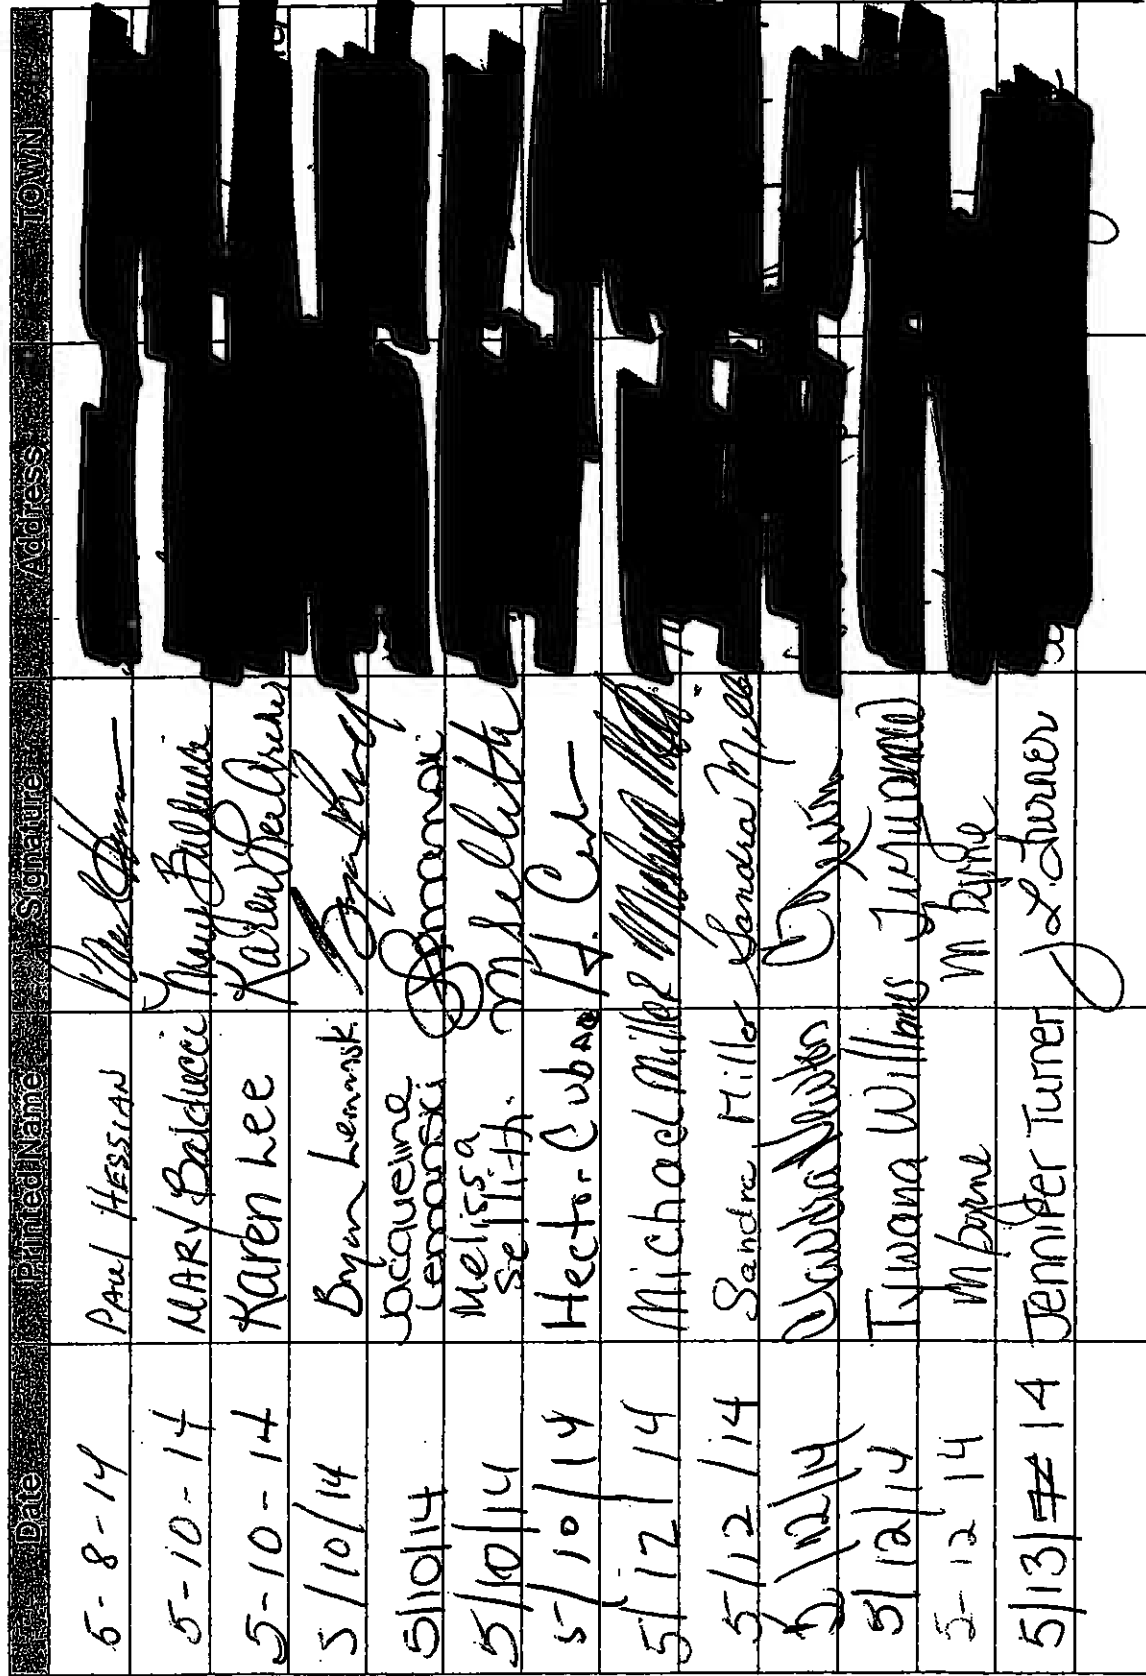 Date Printed Name Signature Address TOWN
5-8-14 PAUL HESSIAN
5-10-14 MARY Balducci Mary Balducci
5-10-14 Karen Lee Karen Lee
5/10/14 Bryan Lemanski
5/10/14 Jacqueline Lemanski
5/10/14 Melissa Sellith M Sellith
5/10/14 Hector Cubano H. Cub
5/12/14 Michael Miller
5/12/14 Sandra Miller Sandra Mille
5/12/14 Newton
5/12/14 Tywana Williams
5-12-14 M Byrne M Byrne
5/13/14 Jennifer Turner J. Turner